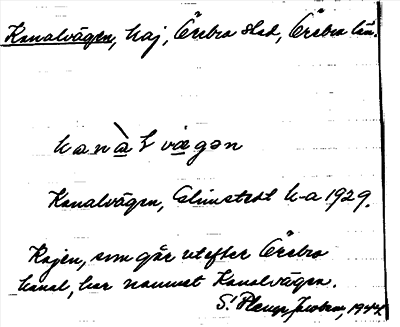 Kanalvägen, kaj, Örebro stad, Örebro län.
kanàlvägən
Kanalvägen, Almstedt k-a 1929.
Kajen, som går utefter Örebro
kanal, har namnet Kanalvägen.
S. 1944.